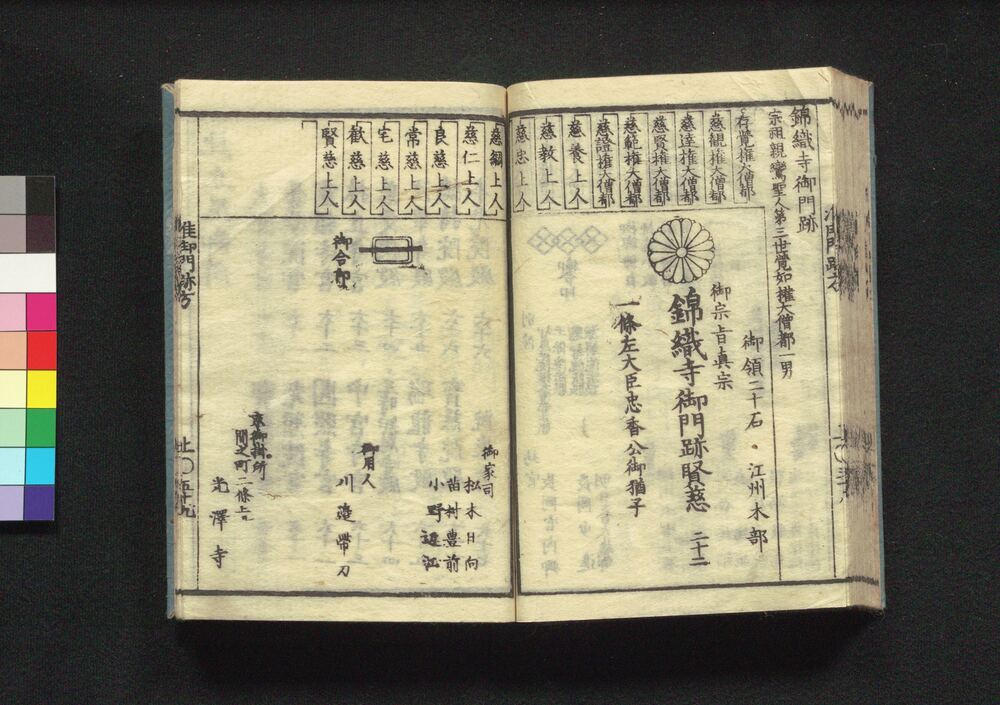 錦織寺御門跡
宗祖親鸞聖人第三世覚如権大僧都一男
存覺権大僧都
慈觀権大僧都
慈達権大僧都
慈賢権大僧都
慈範権大僧都
慈證権大僧都
慈養上人
慈教上人
慈忠上人
御領二十石・江州木部
御宗旨真宗
錦織寺御門跡賢慈 二十二
一條左大臣忠香公御猶子
慈綱上人
慈仁上人
良慈上人
常慈上人
宅慈上人
歡慈上人
賢慈上人
御合印
御家司
松木日向
苗村豊前
小野近江
御用人
川邉帶刀
京御掛所
間之町二條上
光澤寺
准御門跡方
止〇五十九